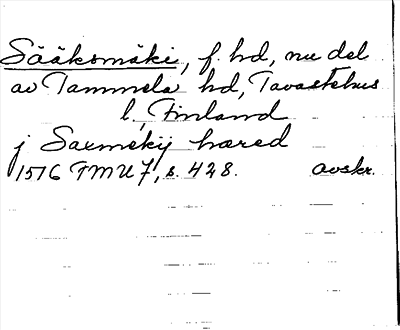 Sääksmäki, f. hd, nu del
av Tammela hd, Tavastehus
l, Finland
j Saxmekij hæred
1516 FMU 7, s. 428. avskr.